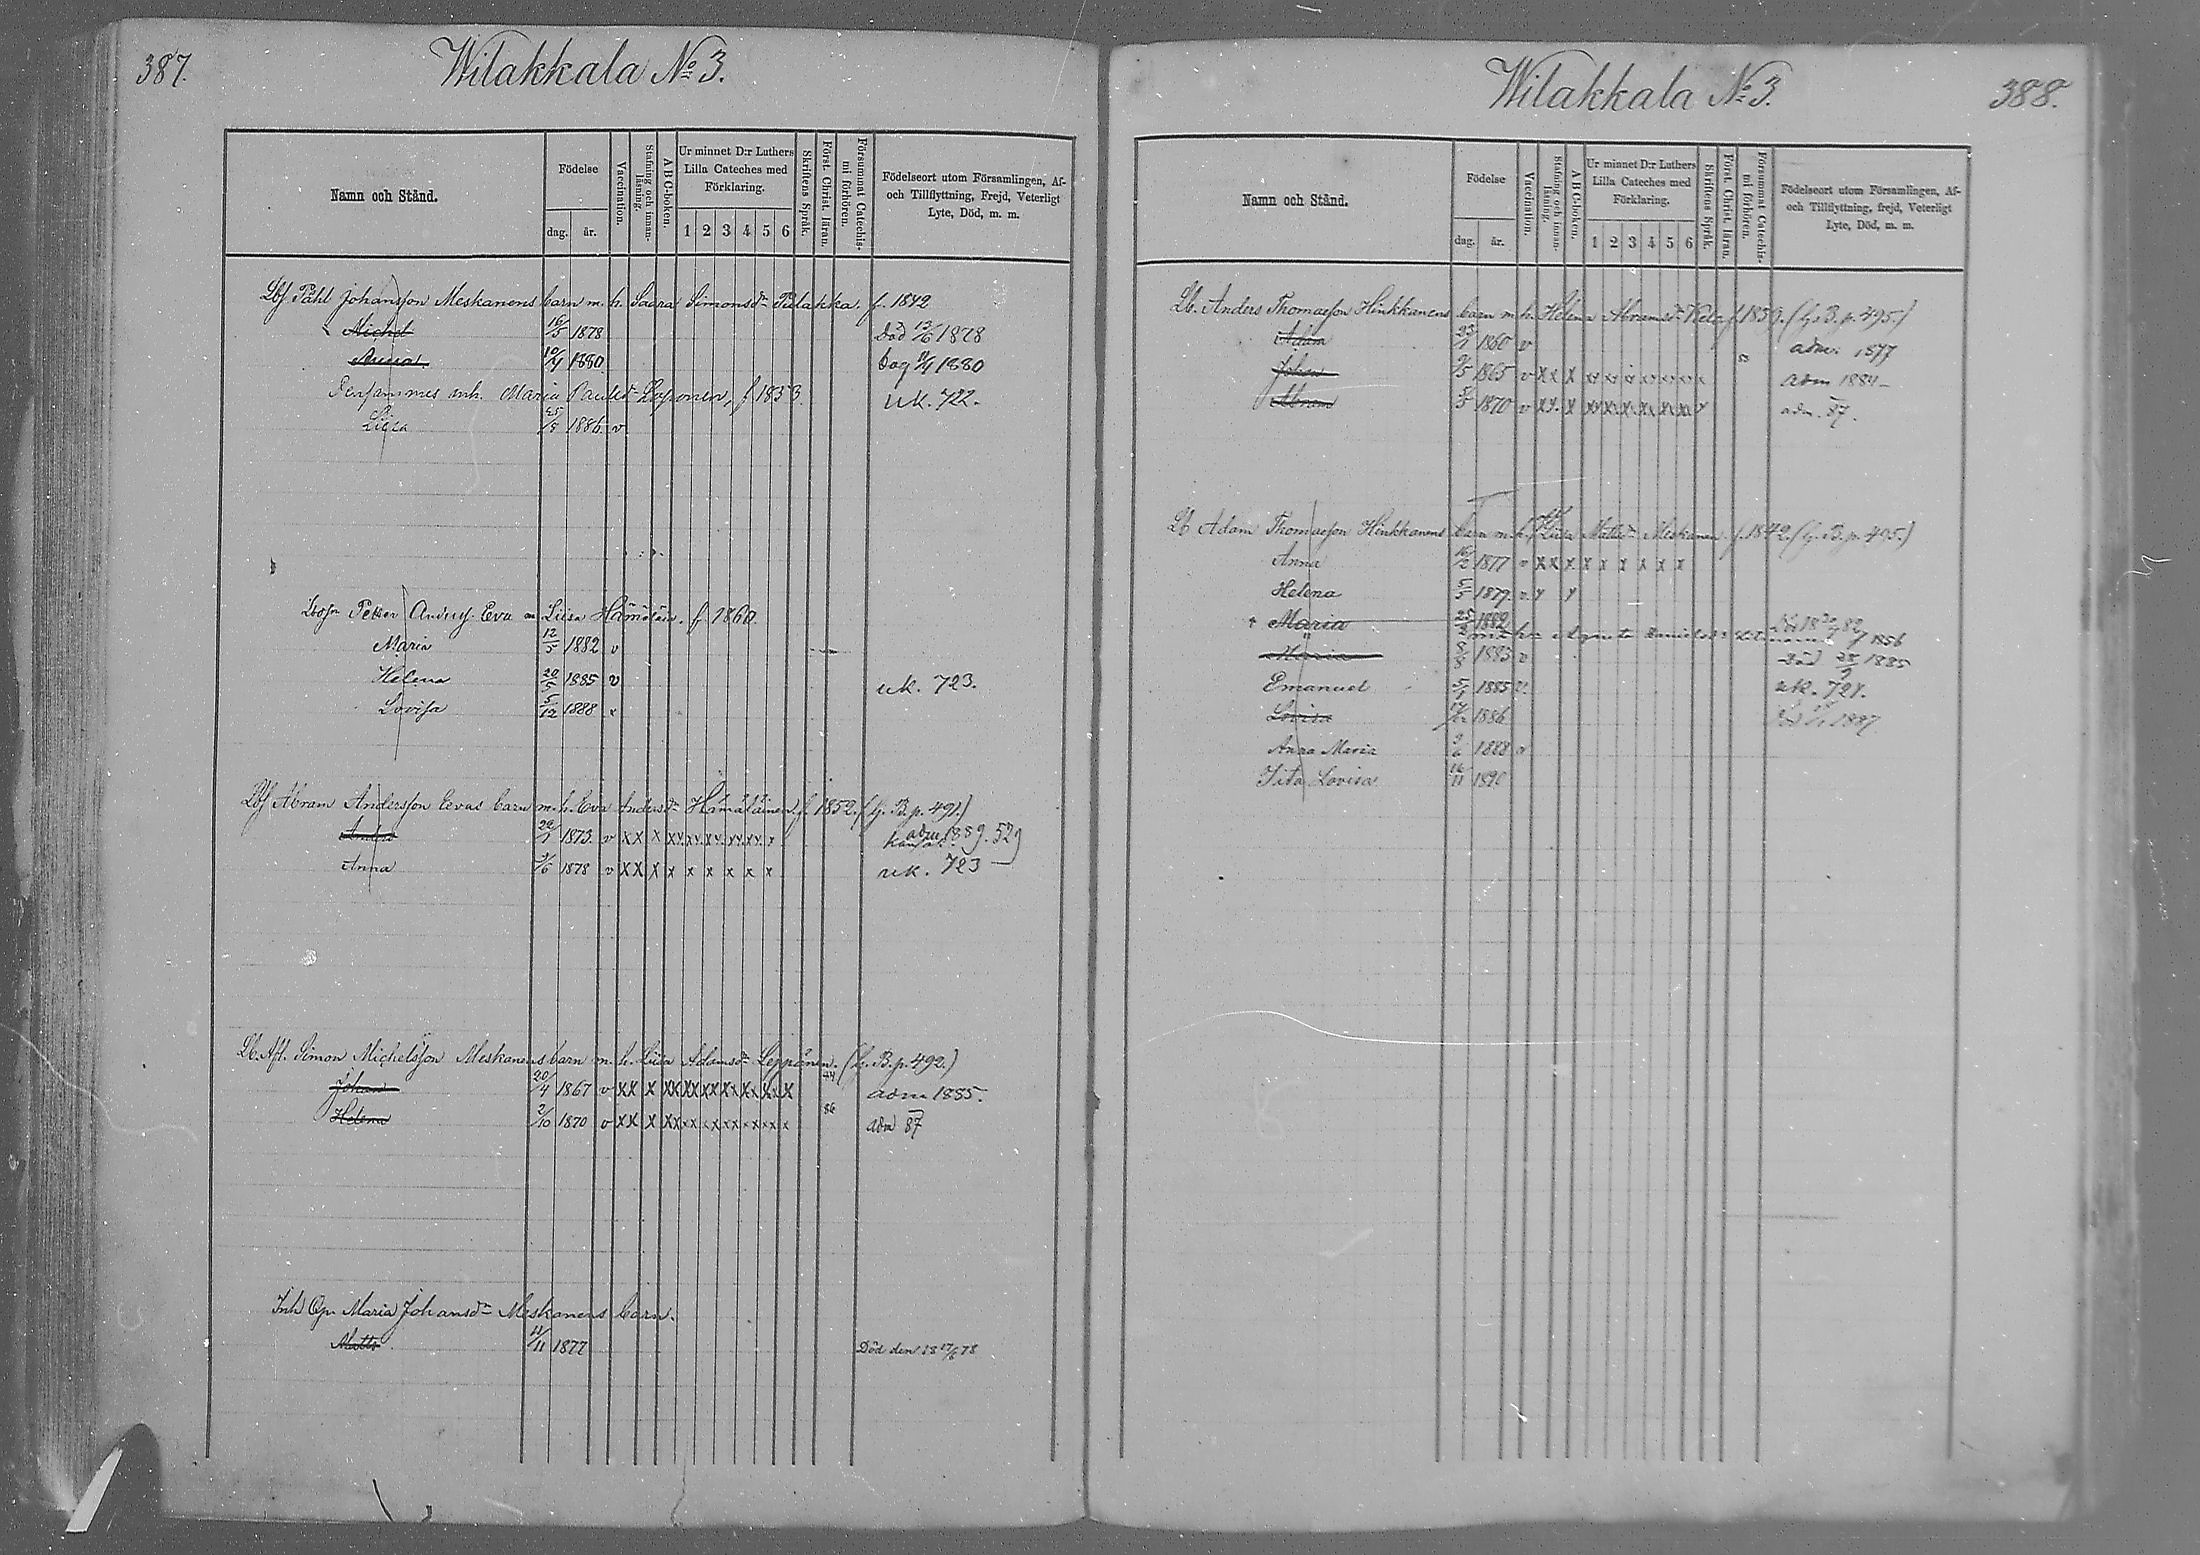 387.
Wilakkala No 3.
Namn och Stånd.
Födelse
dag. år.
Vaccination.
Stafning och innanläsning.
A B C-boken.
Ur minnet D:r Luthers Lilla Cateches med Förklaring.
1 2 3 4 5 6
Skriftens Språk.
Först. Christ. läran.
Försummat Catechismi förhören.
Födelseort utom Församlingen, Af- och Tillflyttning, Frejd, Veterligt Lyte, Död, m. m.
Lbf Påhl Johansson Meskanens barn m. h. Saara Simonsdr Pulakka. f. 1842
Michel 16/5 1878 Död 13/6 1878
Anna 10/4 1880 1880
Densammes m h. Maria Paulsdr f 1853.
Liisa 25/5 1886 v uk. 722.
Petter Anderss. Eva m Liisa Hämäläin. f 1860.
Maria 12/5 1882 v
Helena 20/5 1885 v uk. 723.
Lovisa 5/12 1888
Lbf Abram Andersson Evas barn m. h. Eva Andersdr Hämäläinen f. 1852. (h. B. p. 491.)
1873 v x x x xx xx xx xx xx x adm 1889. 529
Anna 3/6 1878 v x x x x x x x x x uk. 723
Lb. Aft. Simon Michelsson Meskanens barn m. h. Liisa Adamsdr Leppänen. (h. B. p. 492.)
Johan 20/4 1867 v xx x xx xx xx xx xx xx x adm 1885.
Helena 2/10 1870 v xx x xx xx xx xx xx xx x 86 adm 87
Inh Qp. Maria Johansdr Meskanens barn.
Matts 11/11 1877 Död den 18 17/6 78
Wilakkala No 3.
388.
Namn och Stånd.
Födelse
dag. år.
Vaccination.
Stafning och innanläsning.
A B C-boken.
Ur minnet D:r Luthers Lilla Cateches med Förklaring.
1 2 3 4 5 6
Skriftens Språk.
Först. Christ. läran.
Försummat Catechismi förhören.
Födelseort utom Församlingen, Af- och Tillflyttning, frejd, Veterligt Lyte, Död, m. m.
Lb. Anders Thomasson Hinkkanens barn m h. Helena Abramsdr f. 1850. (h. B. p. 495.)
Adam 23/1 1860 v adm. 1877
Johan 9/5 1865 v xx x xx xx xx xx xx xx adm 1884
Abram 1870 v xx x xx xx xx xx xx xx adm. 87.
Lb Adam Thomasson Hinkkanens barn m. h. Liisa Matsdr Meskanen f. 1842. (h. B. p. 495.)
Anna 16/2 1877 v x x x x x x x x x
Helena 5/5 1879. v. x x
Maria 25/2 1882
m h Danielsdr f 1856
Maria 8/8 1883 v Död 28/9 1885
Emanuel 5/1 1885 v. uk. 724.
Lovisa 1886 1887
Anna Maria 1888 v
Lovisa 16/11 1890